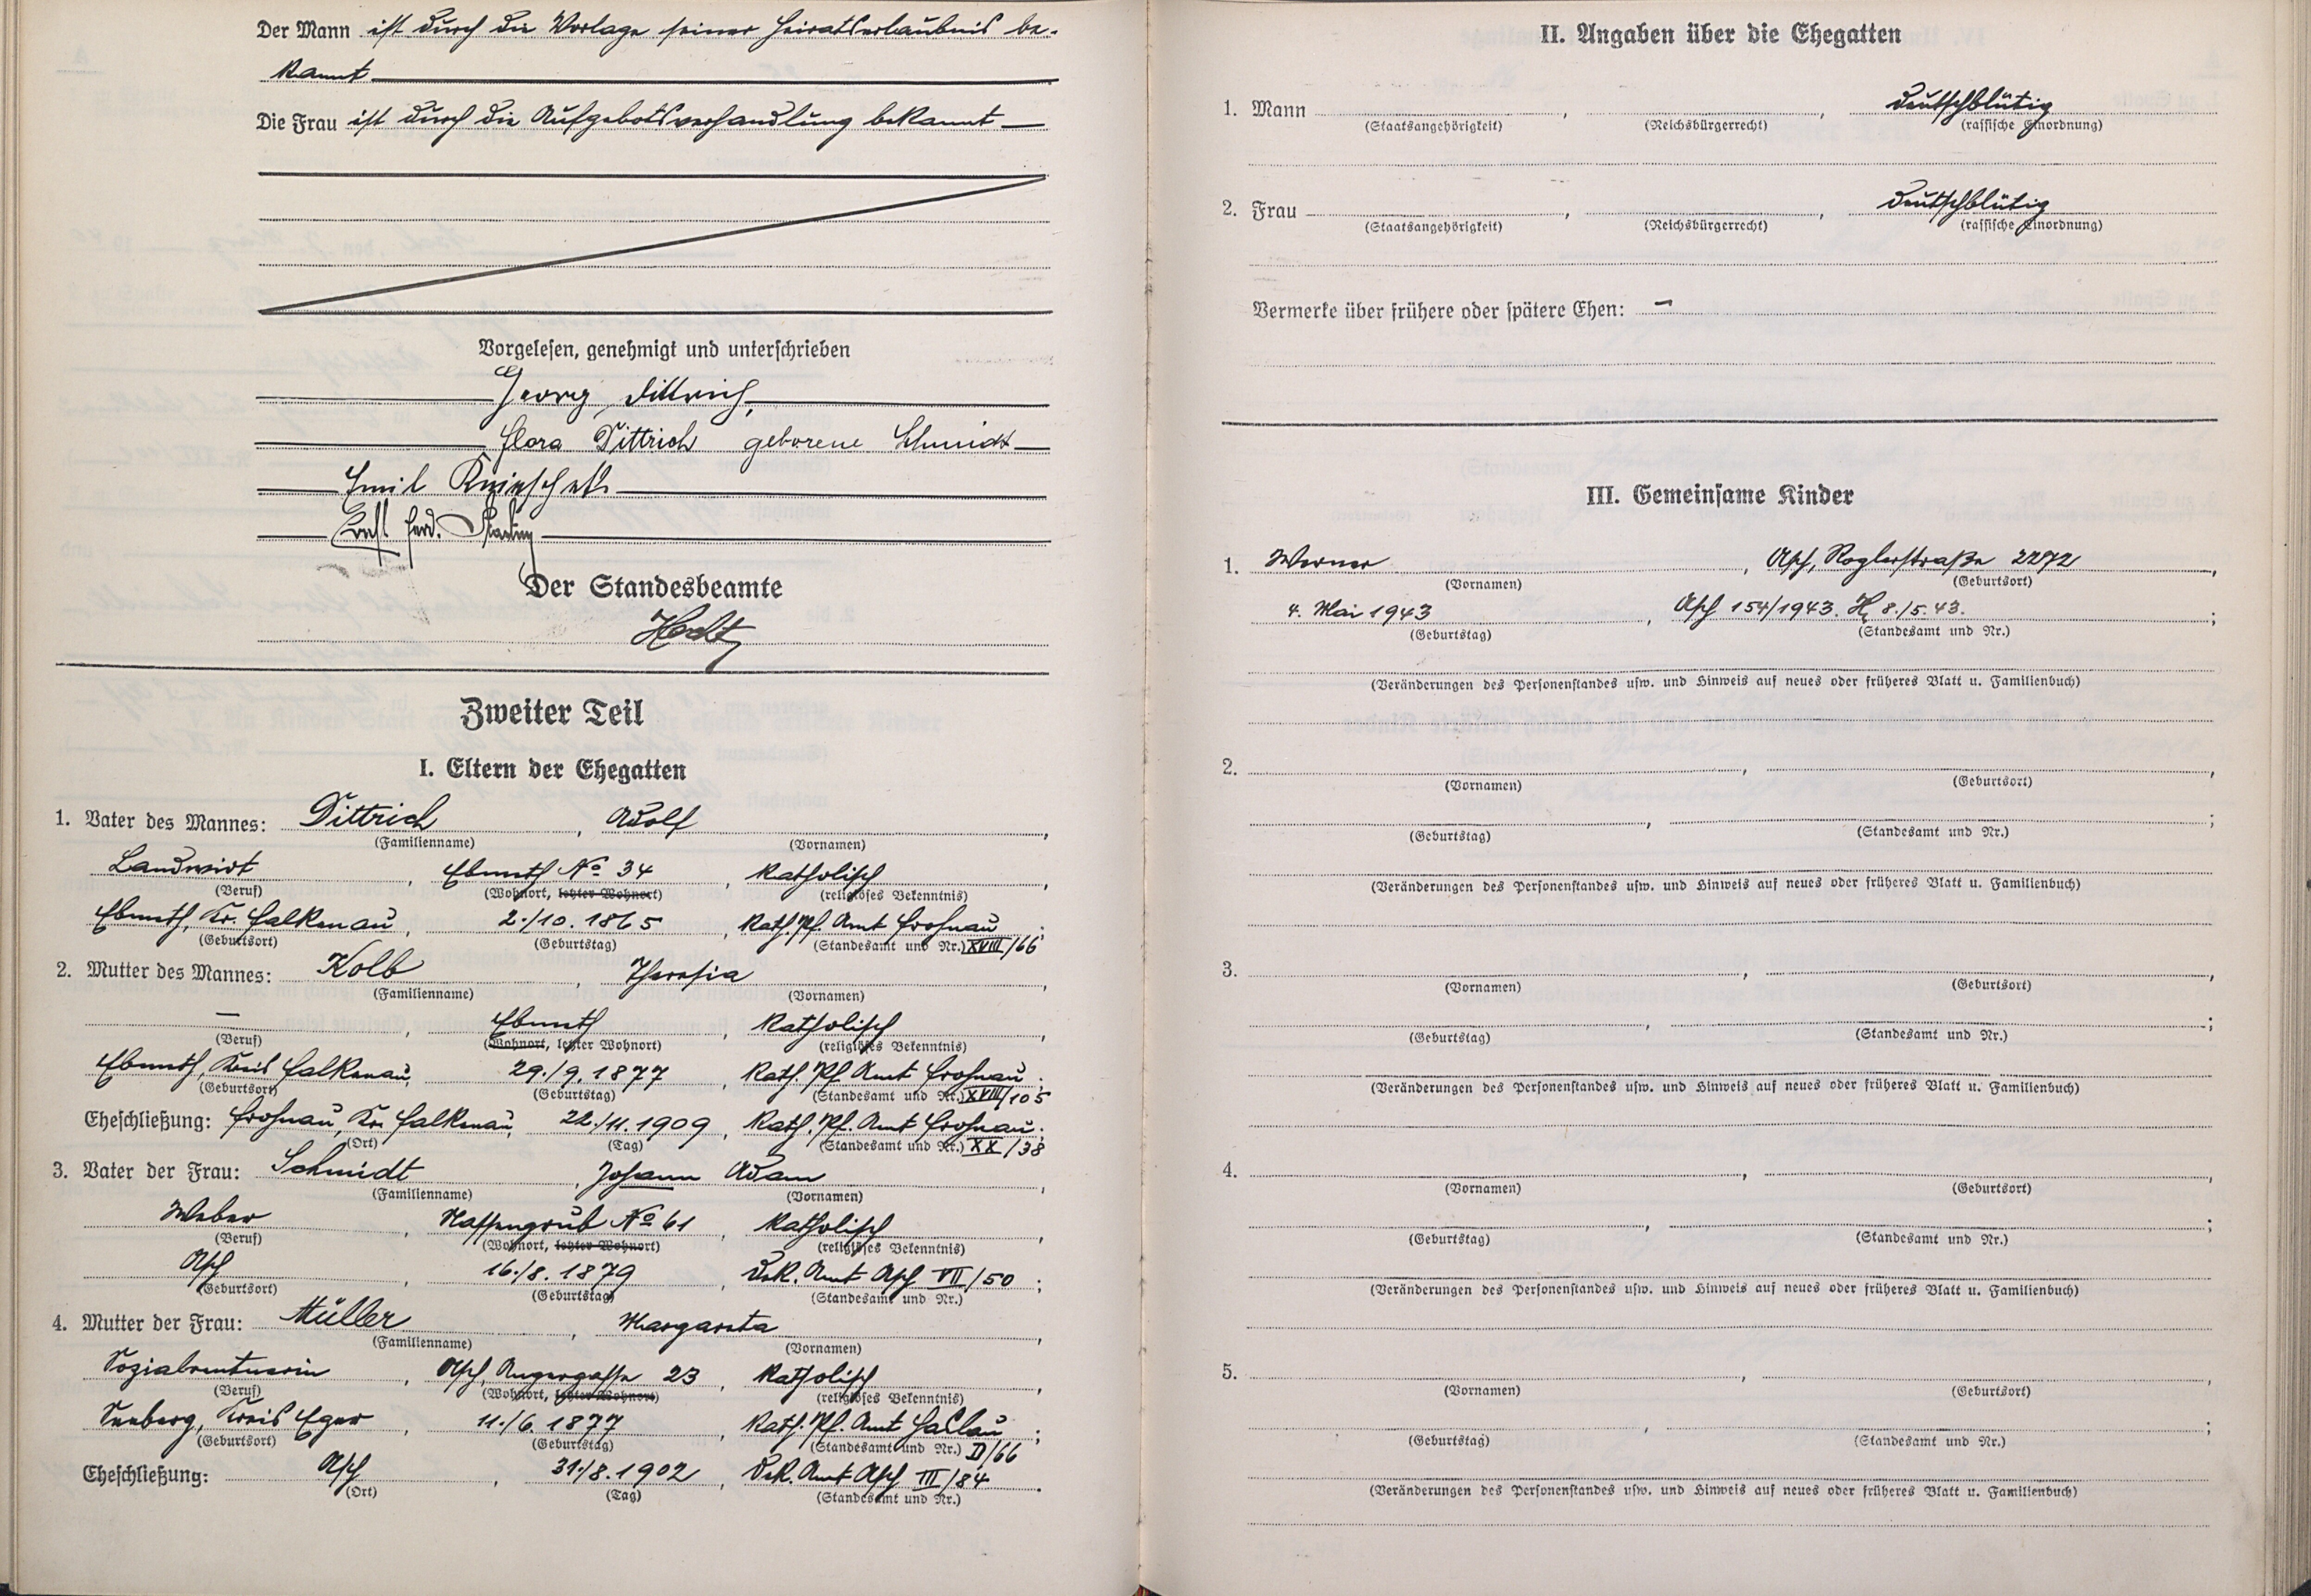 Der Mann ist durch die Vorlage seiner Heiratserlaubnis be-
kannt
Die Frau ist durch die Aufgebotsverhandlung bekannt —
Vorgelesen, genehmigt und unterschrieben
Georg Dittrich
Flora Dittrich geborene Schmidt
Emil
Ernst Ferd.
Der Standesbeamte
Zweiter Teil
I. Eltern der Ehegatten
1. Vater des Mannes: Dittrich, Adolf,
(Familienname) (Vornamen)
Landwirt, Ebmeth No 34, katholisch,
(Beruf) (Wohnort, letzter Wohnort) (religiöses Bekenntnis)
Ebmeth, Kr. Falkenau, 2./10. 1865, Kath. Pf. Amt Frohnau;
(Geburtsort) (Geburtstag) (Standesamt und Nr.) XVIII/66
2. Mutter des Mannes: Kolb, Theresia,
(Familienname) (Vornamen)
—, Ebmeth, katholisch,
(Beruf) (Wohnort, letzter Wohnort) (religiöses Bekenntnis)
Ebmeth, Kreis Falkenau, 29./9. 1877, Kath. Pf. Amt Frohnau;
(Geburtsort) (Geburtstag) (Standesamt und Nr.) XVIII/105
Eheschließung: Frohnau, Kr. Falkenau, 22./11. 1909, Kath. Pf. Amt Frohnau;
(Ort) (Tag) (Standesamt und Nr.) XX/38
3. Vater der Frau: Schmidt, Johann Adam,
(Familienname) (Vornamen)
Weber, Nassengrub No 61, katholisch,
(Beruf) (Wohnort, letzter Wohnort) (religiöses Bekenntnis)
Asch, 16./8. 1879, Dek. Amt Asch VII/50;
(Geburtsort) (Geburtstag) (Standesamt und Nr.)
4. Mutter der Frau: Müller, Margareta,
(Familienname) (Vornamen)
Sozialrentnerin, Asch, Angergasse 23, katholisch,
(Beruf) (Wohnort, letzter Wohnort) (religiöses Bekenntnis)
Seeberg, Kreis Eger, 11./6. 1877, Kath. Pf. Amt Haslau;
(Geburtsort) (Geburtstag) (Standesamt und Nr.) D/66
Eheschließung: Asch, 31./8. 1902, Dek. Amt Asch III/84.
(Ort) (Tag) (Standesamt und Nr.)
II. Angaben über die Ehegatten
1. Mann , , deutschblütig
(Staatsangehörigkeit) (Reichsbürgerrecht) (rassische Einordnung)
2. Frau , , deutschblütig
(Staatsangehörigkeit) (Reichsbürgerrecht) (rassische Einordnung)
Vermerke über frühere oder spätere Ehen: —
III. Gemeinsame Kinder
1. Werner, Asch, Roglerstraße 2272,
(Vornamen) (Geburtsort)
4. Mai 1943, Asch 154/1943. H, 8./5. 43.;
(Geburtstag) (Standesamt und Nr.)
(Veränderungen des Personenstandes usw. und Hinweis auf neues oder früheres Blatt u. Familienbuch)
2. , ,
(Vornamen) (Geburtsort)
, ;
(Geburtstag) (Standesamt und Nr.)
(Veränderungen des Personenstandes usw. und Hinweis auf neues oder früheres Blatt u. Familienbuch)
3. , ,
(Vornamen) (Geburtsort)
, ;
(Geburtstag) (Standesamt und Nr.)
(Veränderungen des Personenstandes usw. und Hinweis auf neues oder früheres Blatt u. Familienbuch)
4. , ,
(Vornamen) (Geburtsort)
, ;
(Geburtstag) (Standesamt und Nr.)
(Veränderungen des Personenstandes usw. und Hinweis auf neues oder früheres Blatt u. Familienbuch)
5. , ,
(Vornamen) (Geburtsort)
, ;
(Geburtstag) (Standesamt und Nr.)
(Veränderungen des Personenstandes usw. und Hinweis auf neues oder früheres Blatt u. Familienbuch)